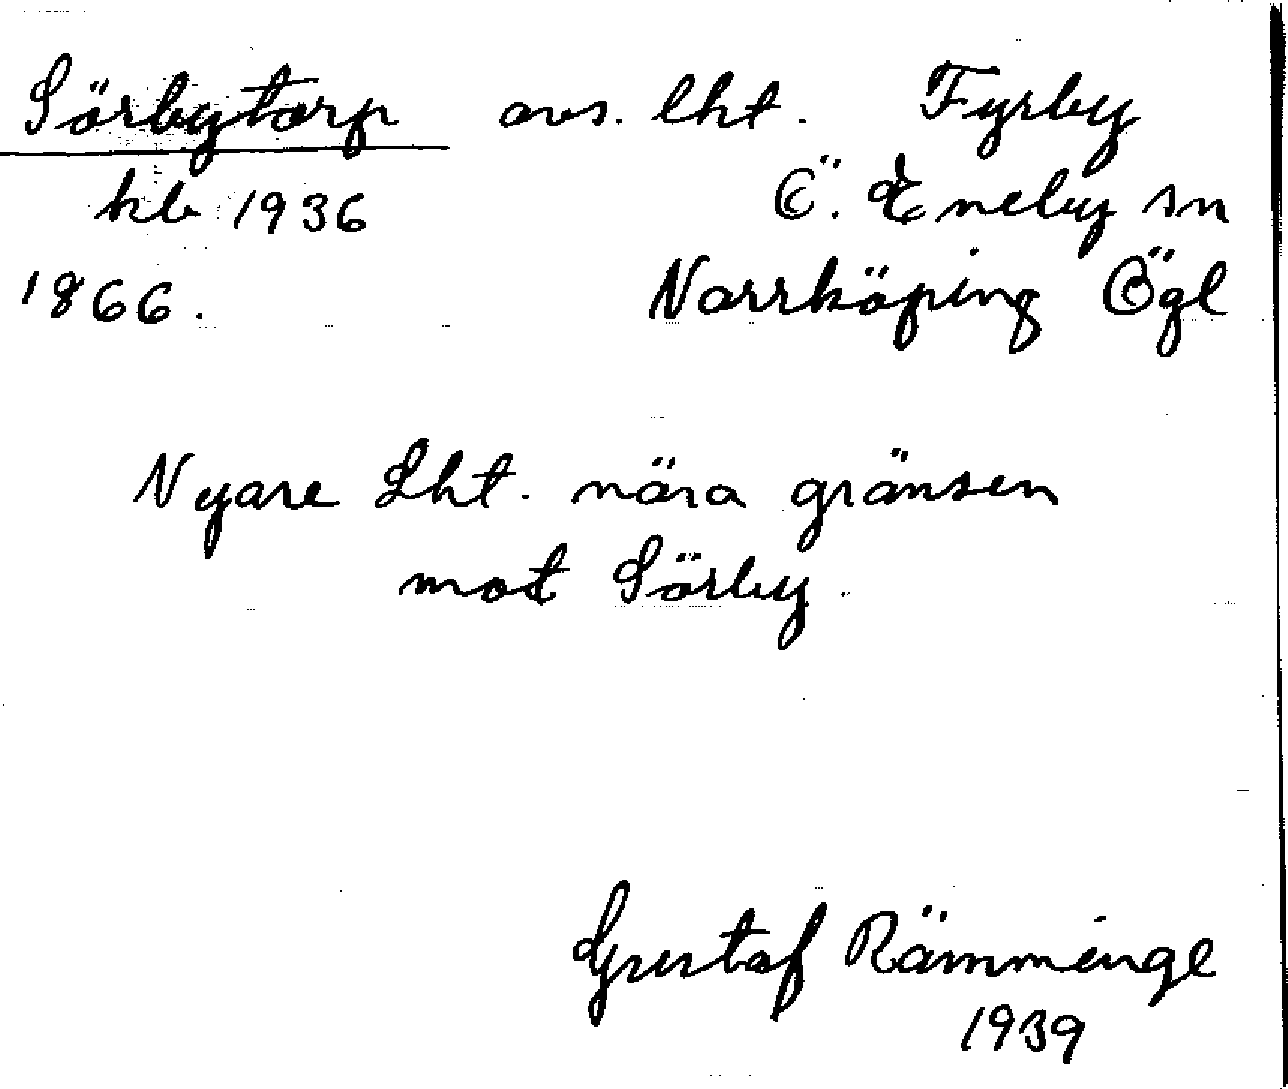 Sörbytorp avs. lht. Fyrby
kb 1936 Ö. Eneby sn
1866. Norrköping Ögl
Nyare Lht. nära gränsen
mot Sörby.
Gustaf Rämminge
1939